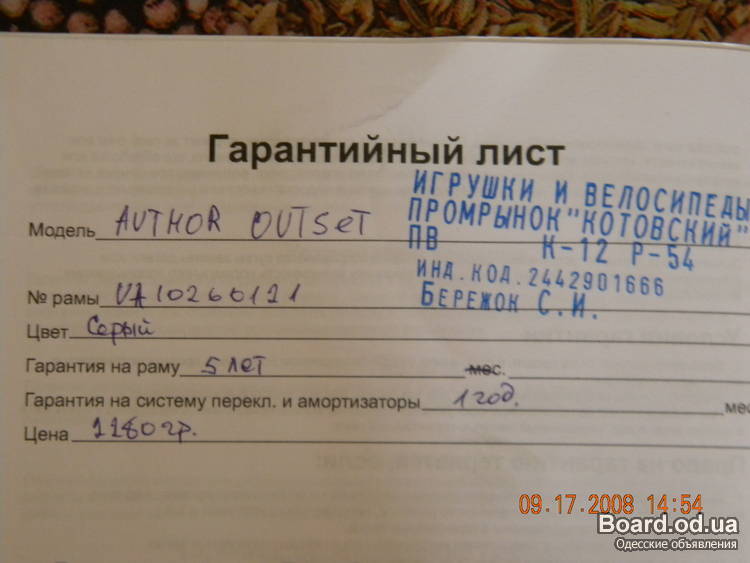 Гарантийный лист
ИГРУШКИ И ВЕЛОСИПЕДЫ
ПРОМРЫНОК "КОТОВСКИЙ"
ПВ К-12 Р-54
ИНД.КОД.2442901666
БЕРЕЖОК С.И.
Модель AUTHOR OUTSET
№ рамы UA10260121
Цвет Серый
Гарантия на раму 5 лет мес.
Гарантия на систему перекл. и амортизаторы 1 год. мес
Цена 2280 гр.
09.17.2008 14:54
Board.od.ua
Одесские объявления